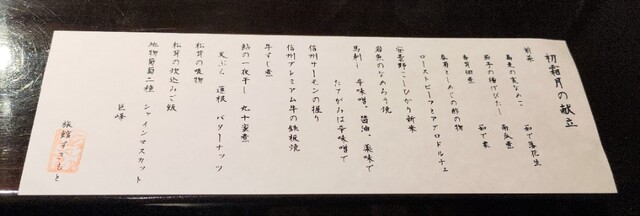 初霜月の献立
前菜
菊光の実なめこ 茹で落花生
茄子の揚げびたし 南瓜煮
青首畑煮 茹で栗
春菊としめじの酢の物
ローストビーフとアプロドルチェ
安曇野こしひかり新米
岩魚のなめろう焼
馬刺し 辛味噌、醤油、薬味で
たてがみは辛味噌で
信州サーモンの握り
信州プレミアム牛の鉄板焼
牛すじ煮
鮎の一夜干し 丸十蜜煮
天ぷら 蓮根 バターナッツ
松茸の吸物
松茸の炊込みご飯
地物葡萄二種 シャインマスカット
巨峰
旅館すぎもと